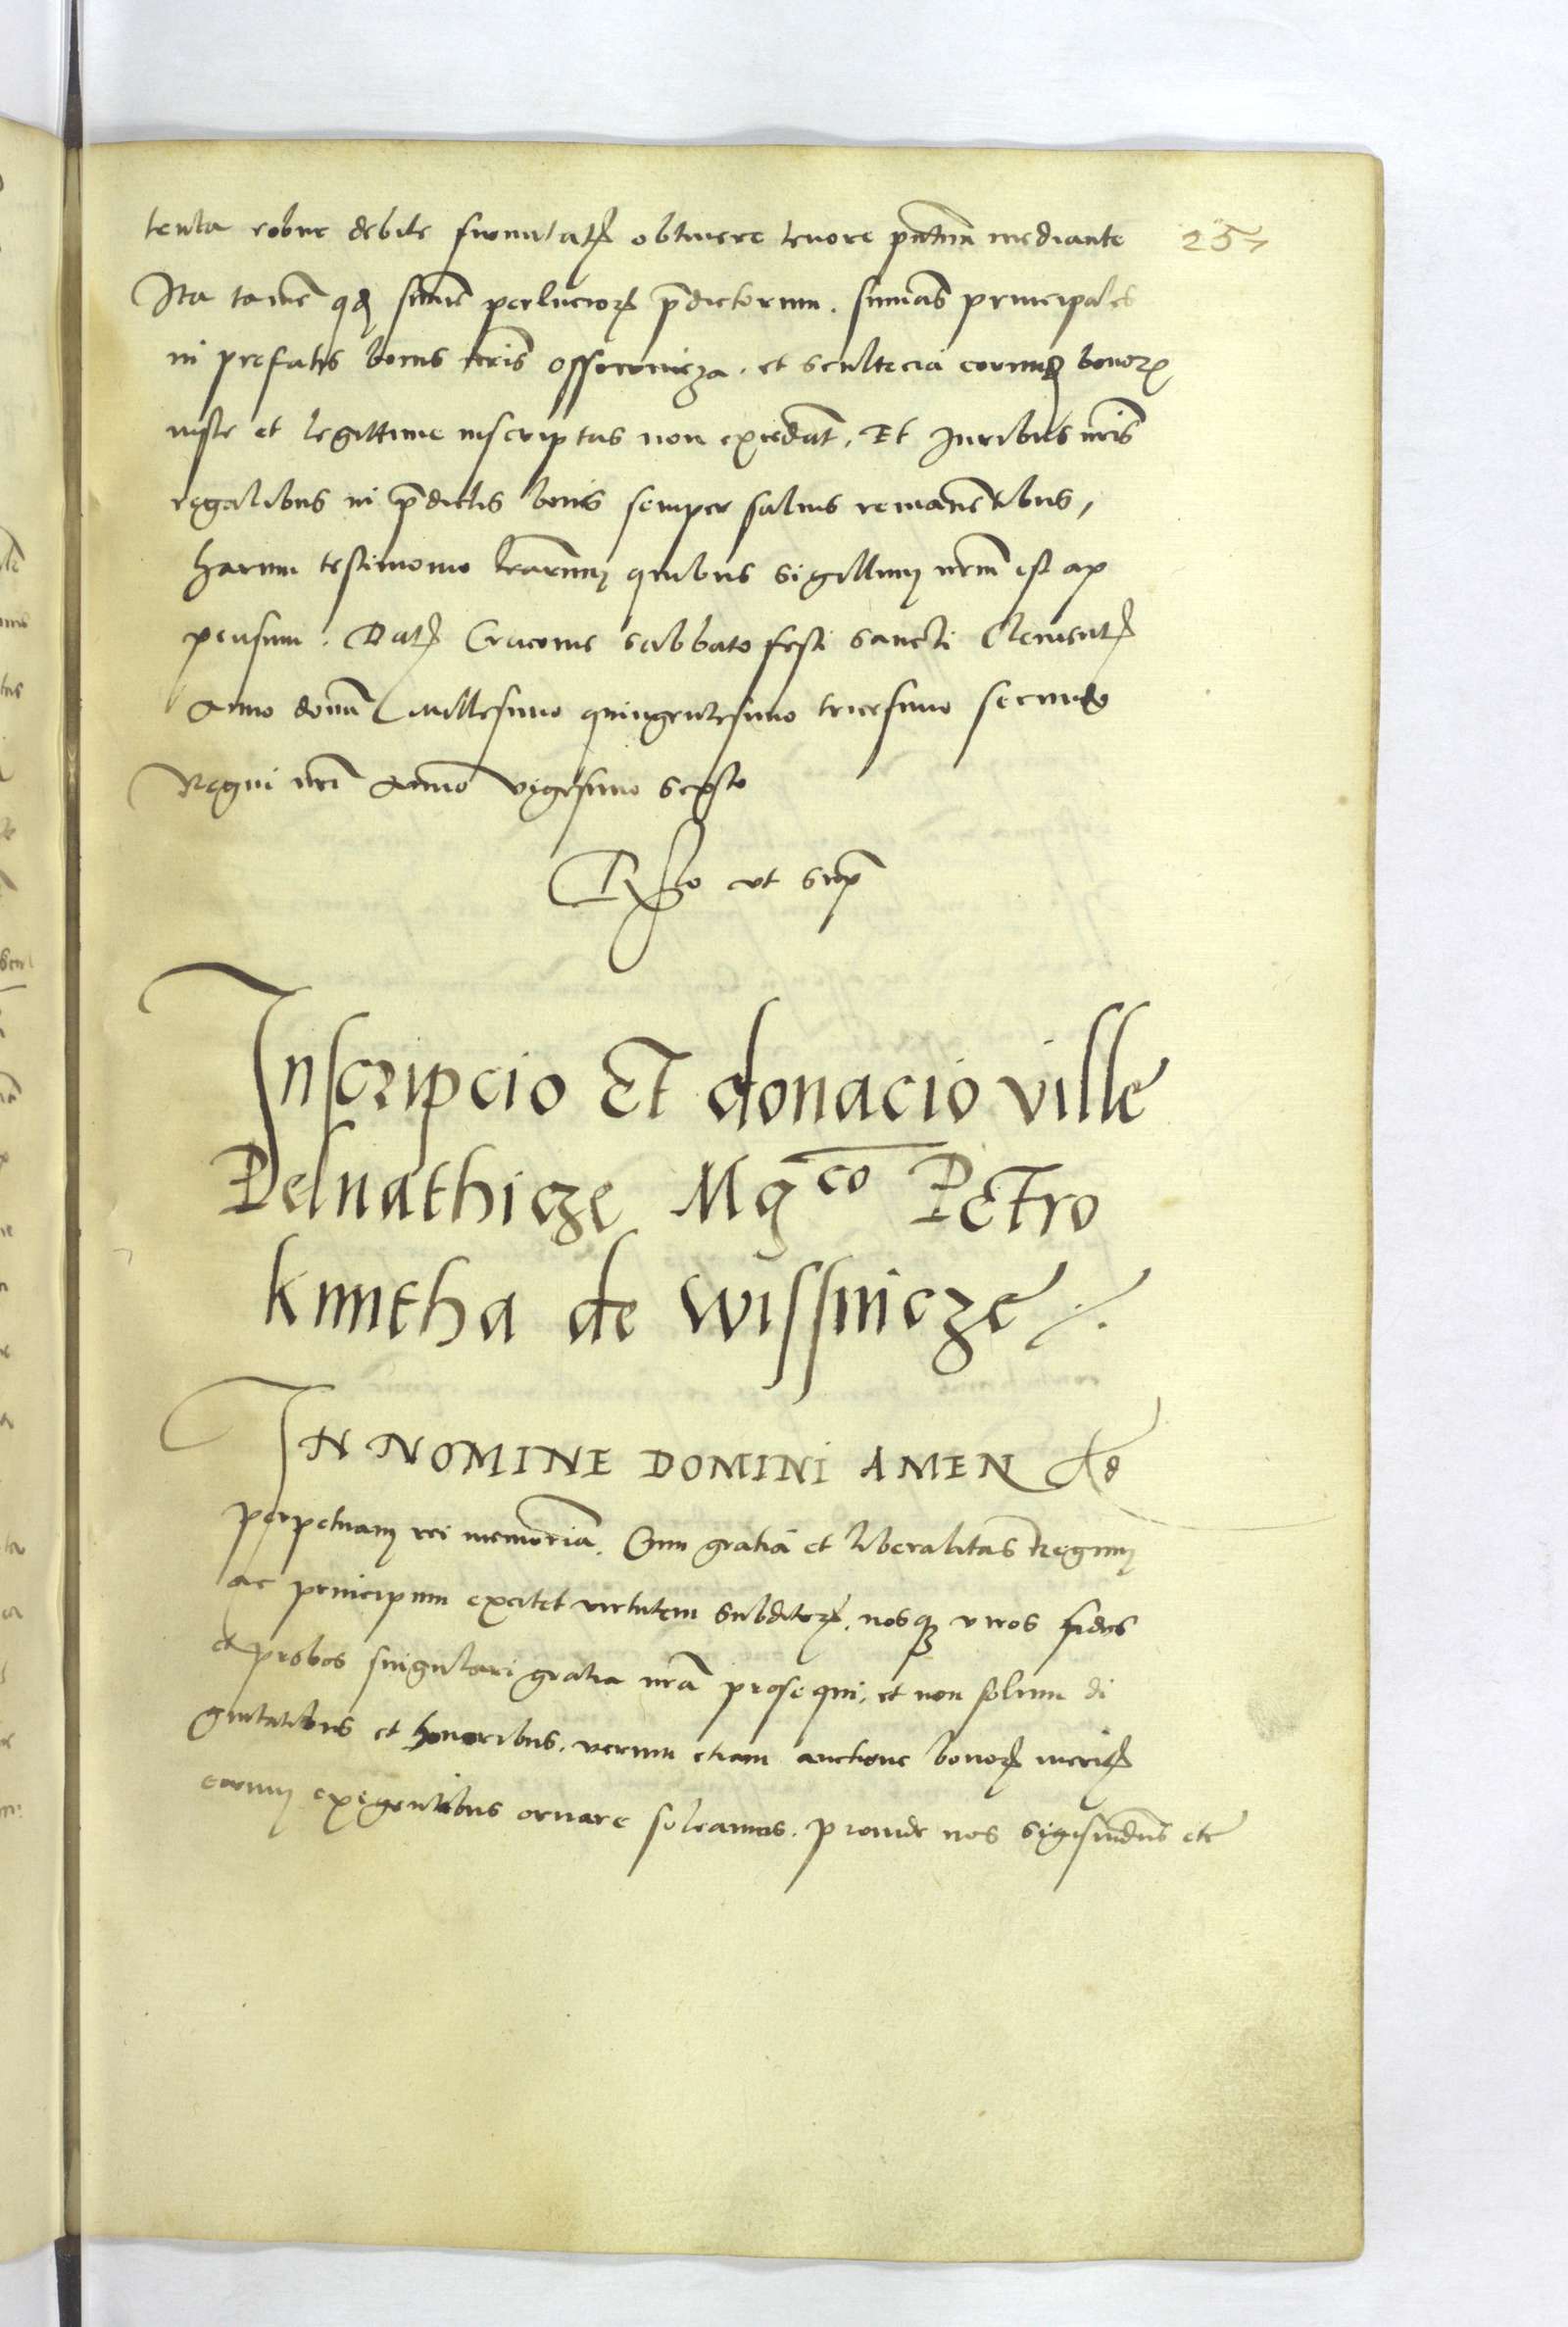 257
tenta robur debite firmitatꝭ obtinere tenore pn̄tium mediante
Ita tamē qđ sum̄e perlucroꝝ p̄dictorum. summas principales
in prefatis bonis nr̄is Ossecznicza. et scultecia eorundē bonoꝝ
iuste et legittime inscriptas non excedāt. Et Iuribus nr̄is
regalibus in p̄dictis bonis semper saluis remanētibus,
harum testimonio lr̄arum quibus sigillum nrm̄ est ap
pensum. Datꝭ Cracouie sabbato festi sancti Clementꝭ
Anno domī Millesimo quingentesimo tricesimo secundo
Regni nr̄i Anno vigesimo sexto
Rᵒ vt supᵃ
Inscripcio Et donacio ville
Pelnathicze Mgᶜᵒ Petro
kmitha de wissnicze ./.
IN NOMINE DOMINI AMEN Ad
perpetuam rei memoriā. Cum gratia et liberalitas Regum
ac principum excitet virtutem subditoꝝ. nosqꝫ viros fidos
et probos singulari gratia nrā prosequi, et non solum di
gnitatibus et honoribus. verum etiam auctione bonoꝝ meritꝭ
eorum exigentibus ornare soleamus. proinde nos Sigismūdus etc